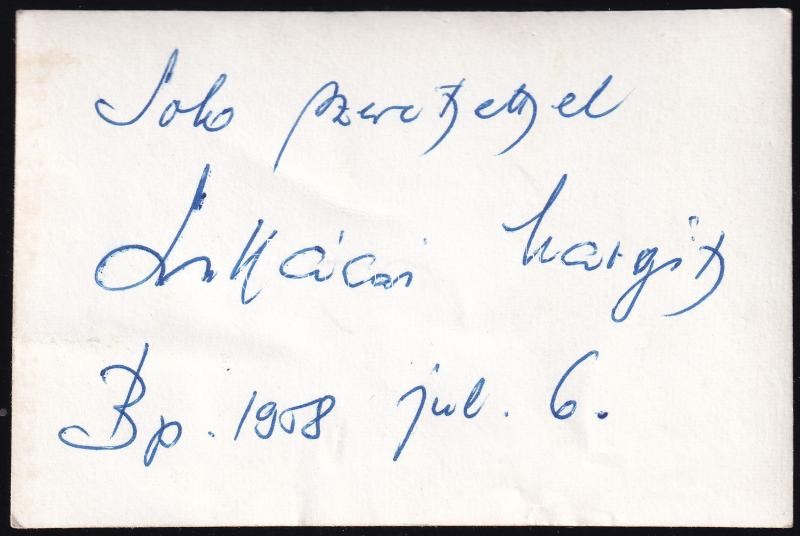 Sok szeretettel
Lukács Margit
Bp. 1958 jul. 6.